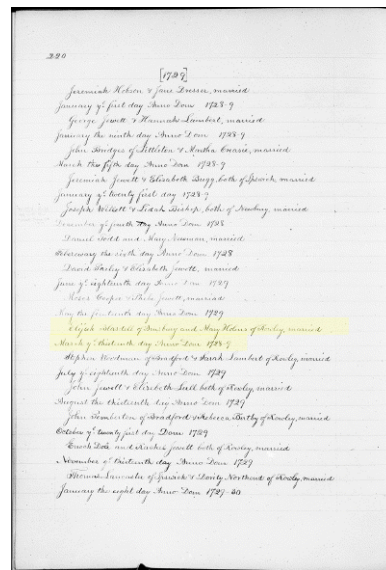 220
[1729]
Jeremiah Hobson & Jane Dresser, married
January yᵉ first day Anno Dom 1728-9
George Jewett & Hannah Lambert, married
January the ninth day Anno Dom 1728-9
John Bridges of Littleton & Martha, married
March the fifth day Anno Dom 1728-9
Jeremiah Jewett & Elizabeth Bugg, both of Ipswich, married
January yᵉ twenty first day 1728-9
Joseph Willett & Bishop, both of Newbury, married
December yᵉ fourth day Anno Dom 1728
Daniel Todd and Mary Newman, married
February the sixth day Anno Dom 1728
David & Elizabeth Jewett, married
June yᵉ eighteenth day Anno Dom 1729
Moses Cooper & Jewett, married
May the day Anno Dom 1729
Elijah Blasdell of and Mary Holmes of Rowley, married
March yᵉ thirteenth day Anno Dom 1728-9
Stephen of Bradford & Sarah Lambert of Rowley, married
July yᵉ eighteenth day Anno Dom 1729
John Jewett & Elizabeth Lull both of Rowley, married
August the thirteenth day Anno Dom 1729
John Pemberton of Bradford & Rebecca of Rowley, married
October yᵉ twenty first day Dom 1729
Enoch Dole and Rachel Jewett both of Rowley, married
November yᵉ thirteenth day Anno Dom 1729
Thomas Lancaster of Ipswich & Northend of Rowley, married
January the eight day Anno Dom 1729-30